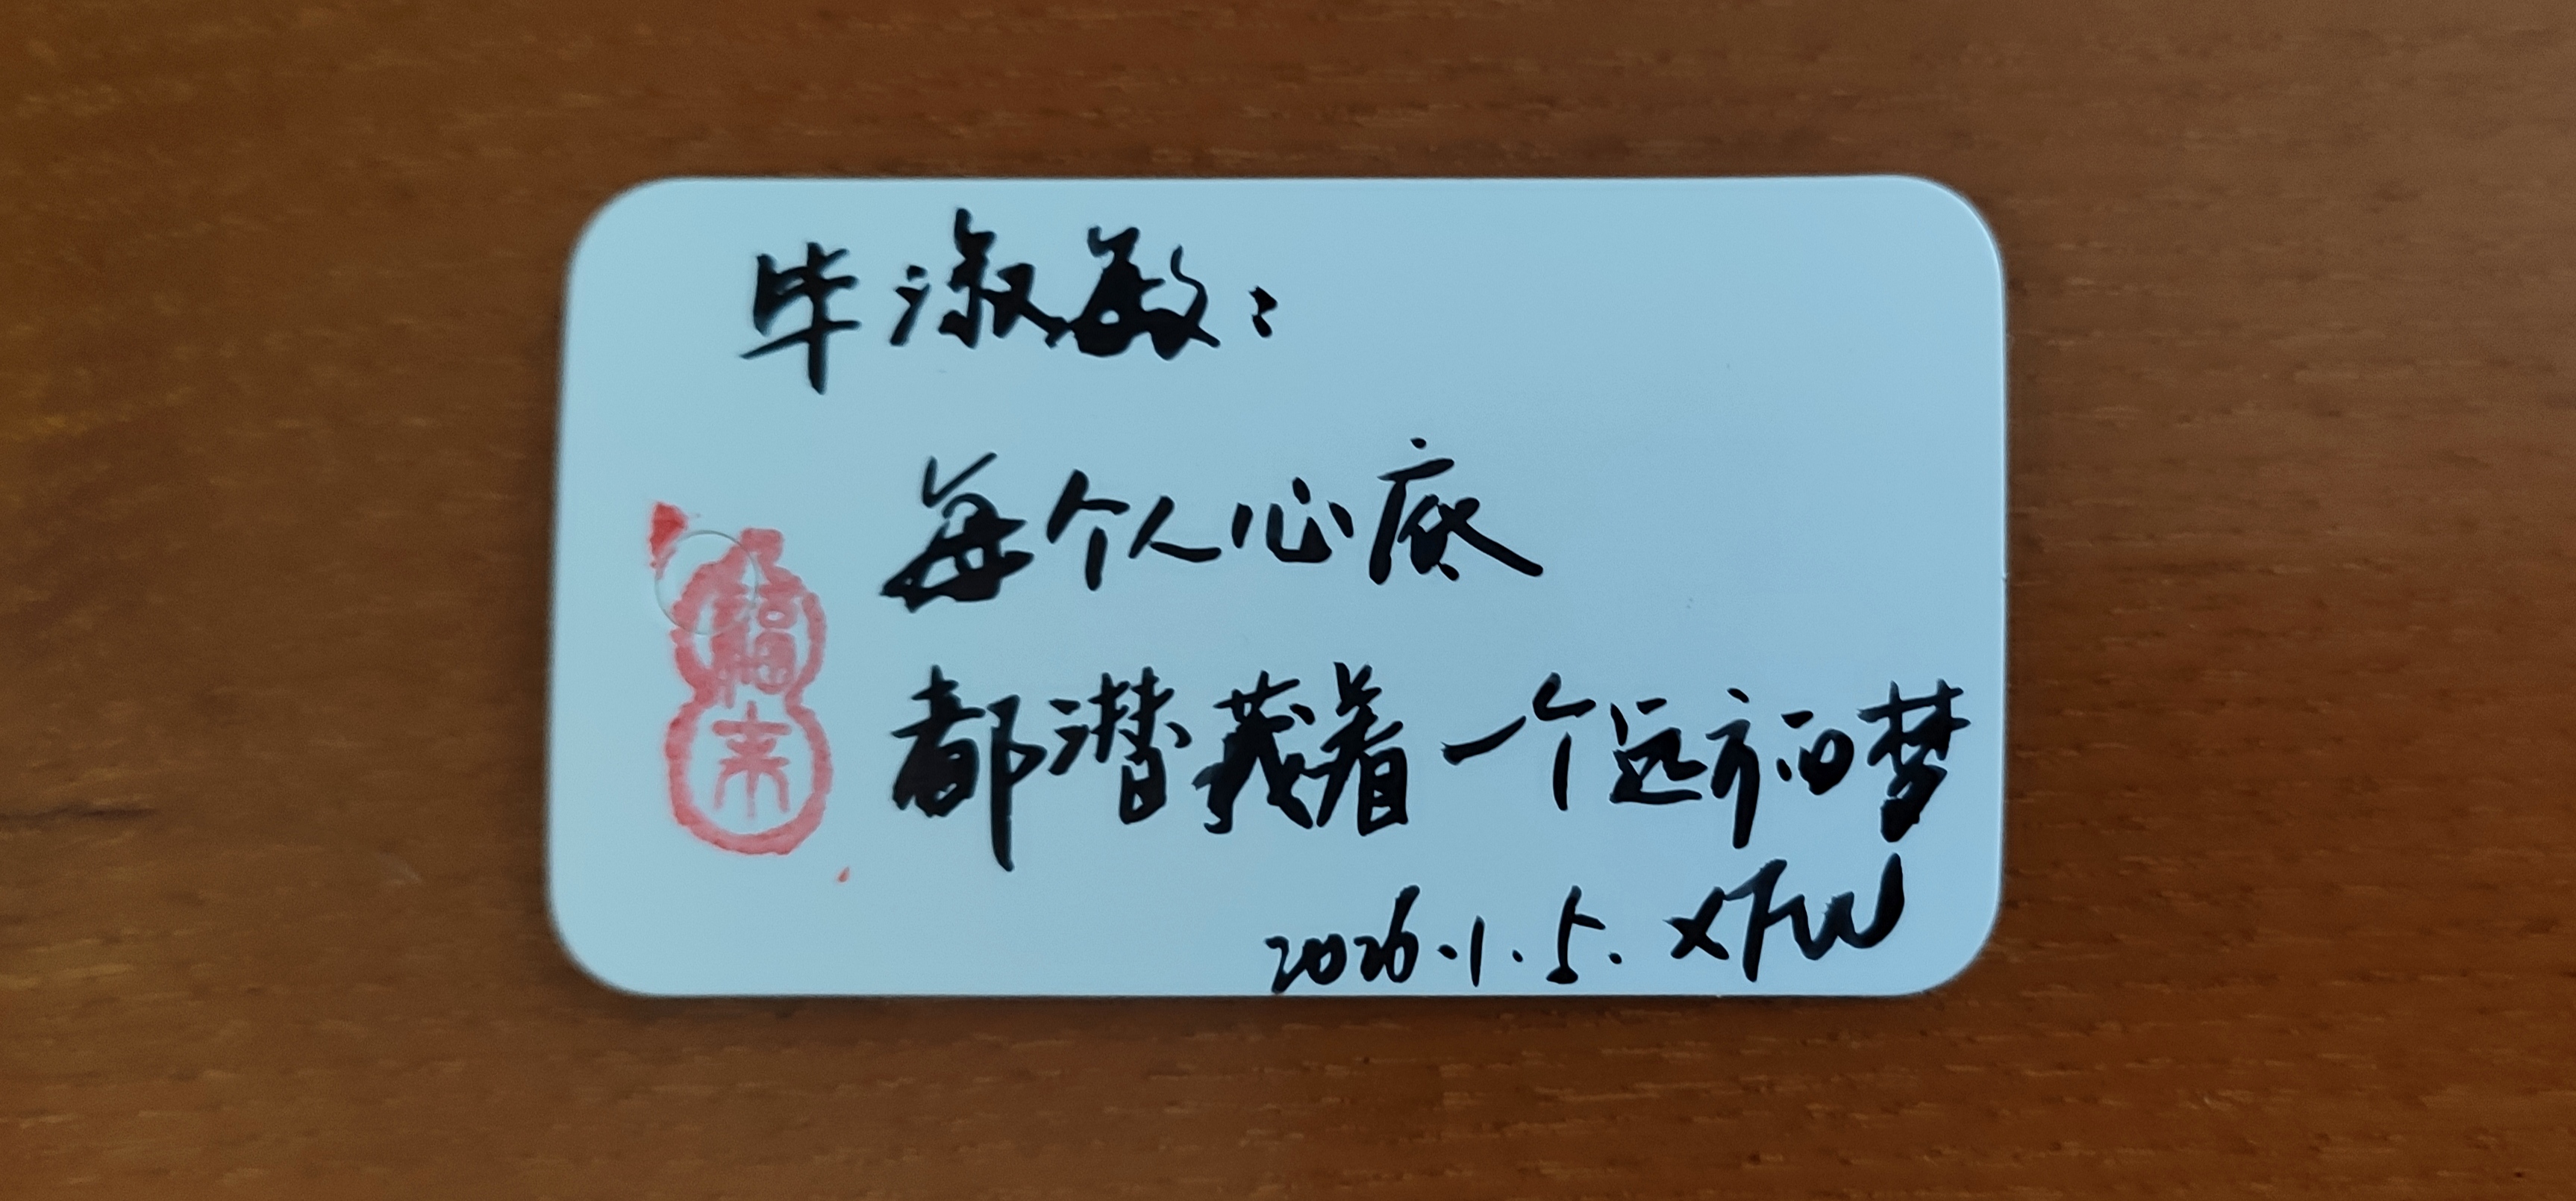 毕淑敏：
每个人心底
都潜藏着一个远方的梦
2026.1.5. XFW
福
来